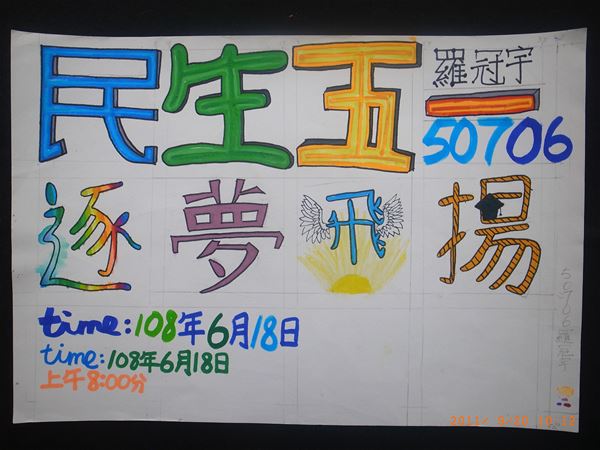 民生五 羅冠宇
50706
逐夢飛揚
time:108年6月18日
time:108年6月18日
上午8:00分
50706羅冠宇